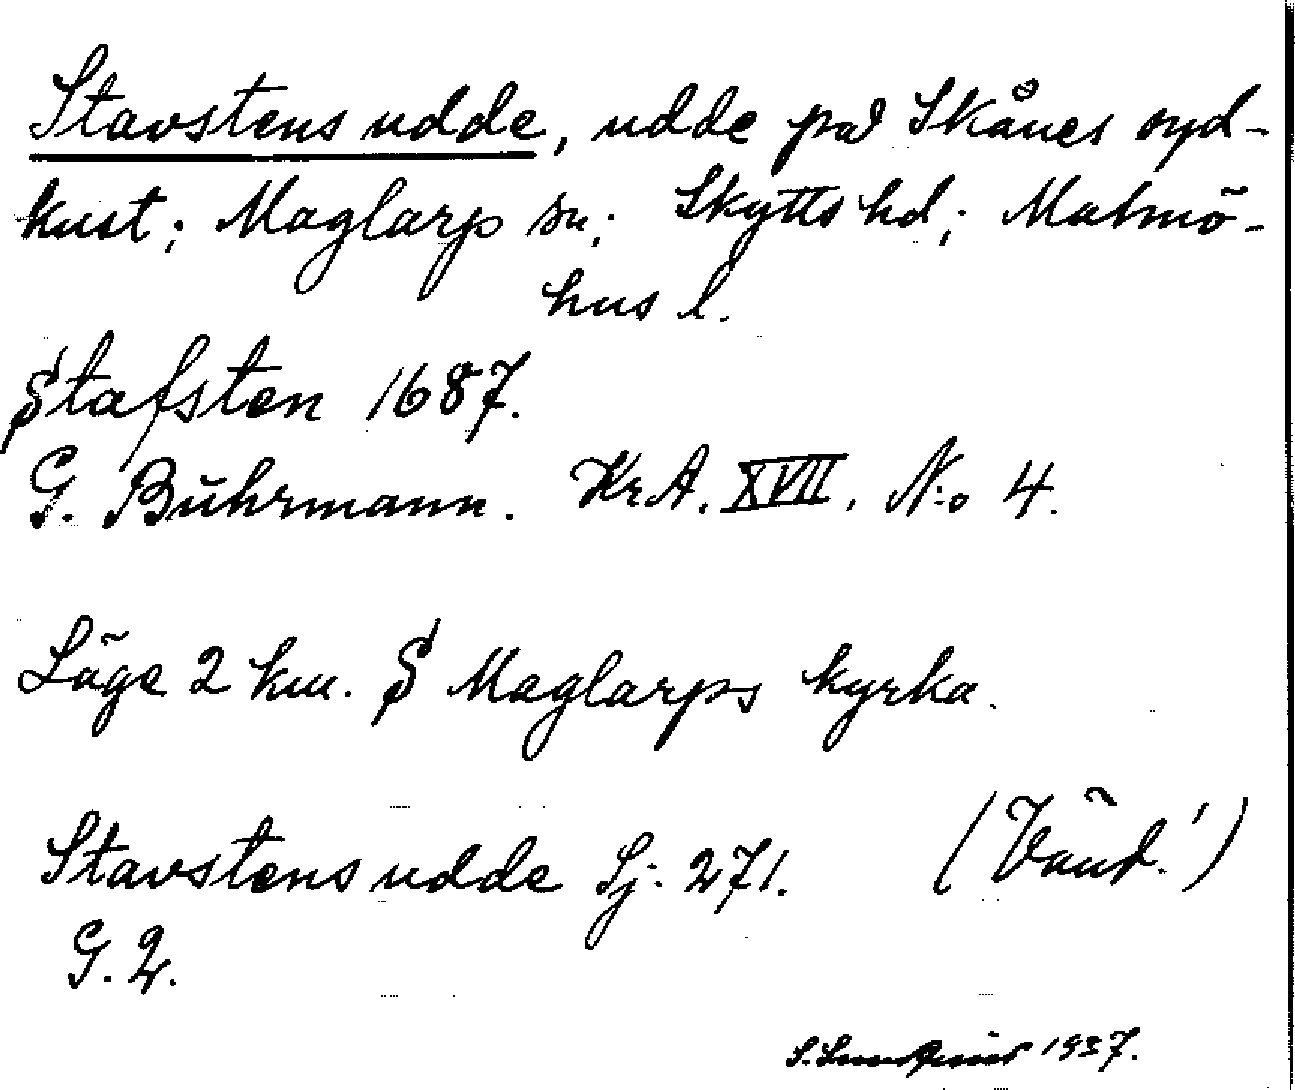 Stavstens udde, udde på Skånes syd-
kust; Maglarp sn; Skytts hd; Malmö-
hus l.
Stafsten 1687.
G. Buhrmann. KrA. XVII. N:o 4.
Läge 2 km. S Maglarps kyrka.
Stavstens udde Sj. 271. (Vänd!)
G. 2.
1937.